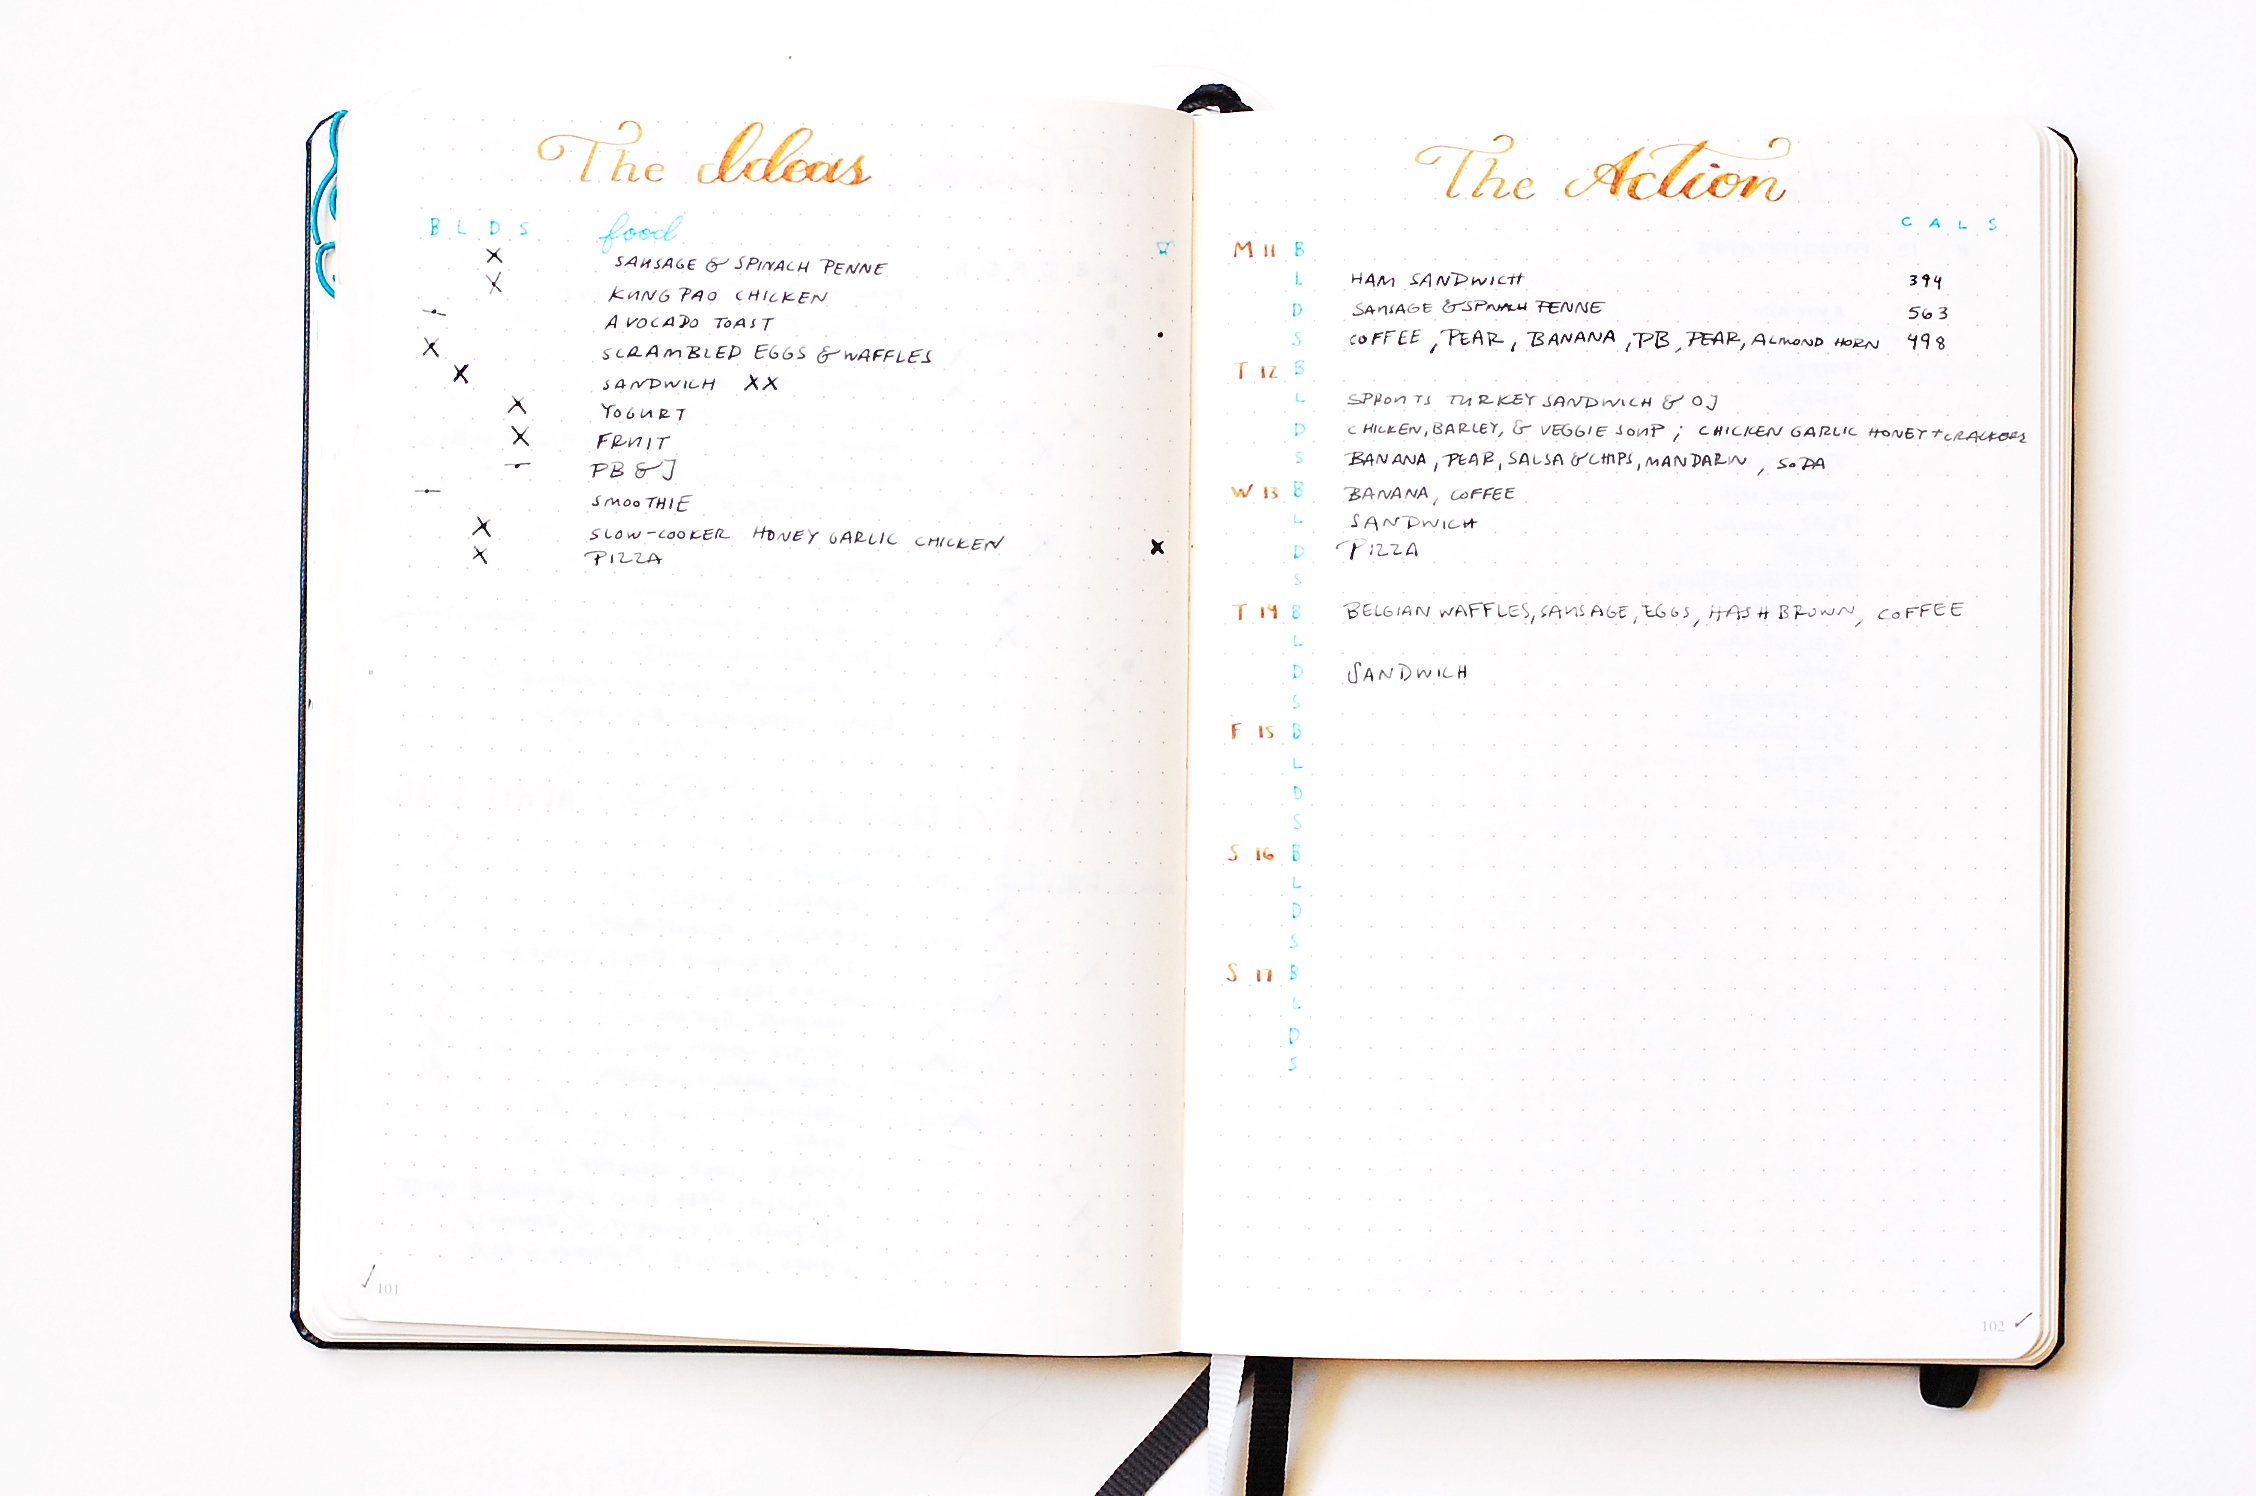 The Ideas
B L D S food
X SAUSAGE & SPINACH PENNE
X KUNG PAO CHICKEN
AVOCADO TOAST
X SCRAMBLED EGGS & WAFFLES
X SANDWICH XX
X YOGURT
X FRUIT
PB & J
SMOOTHIE
X SLOW-COOKER HONEY GARLIC CHICKEN X
X PIZZA
101
The Action
CALS
M 11 B
L HAM SANDWICH 394
D SAUSAGE & SPINACH PENNE 563
S COFFEE, PEAR, BANANA, PB, PEAR, ALMOND HORN 498
T 12 B
L SPROUTS TURKEY SANDWICH & OJ
D CHICKEN, BARLEY, & VEGGIE SOUP; CHICKEN GARLIC HONEY + CRACKERS
S BANANA, PEAR, SALSA & CHIPS, MANDARIN, SODA
W 13 B BANANA, COFFEE
L SANDWICH
D PIZZA
S
T 14 B BELGIAN WAFFLES, SAUSAGE, EGGS, HASH BROWN, COFFEE
L
D SANDWICH
S
F 15 B
L
D
S
S 16 B
L
D
S
S 17 B
L
D
S
102